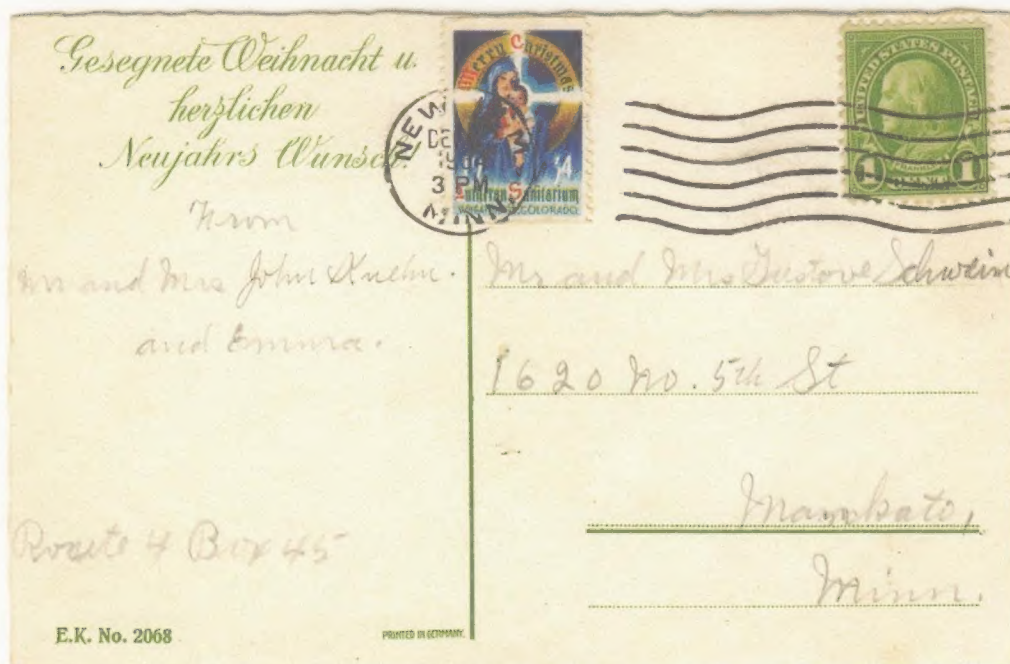 Gesegnete Weihnacht u.
herzlichen
Neujahrs Wunsch
From
Mr and Mrs John Kuehn.
and Emma.
Route 4 Box 45
E.K. No. 2068
PRINTED IN GERMANY.
Merry Christmas
Lutheran Sanitarium
COLORADO
NEW
DE
1934
3 PM
MINN
UNITED STATES POSTAGE
1 1
Mr and Mrs Gustove Schwein
1620 No. 5th St
Mankato,
Minn.